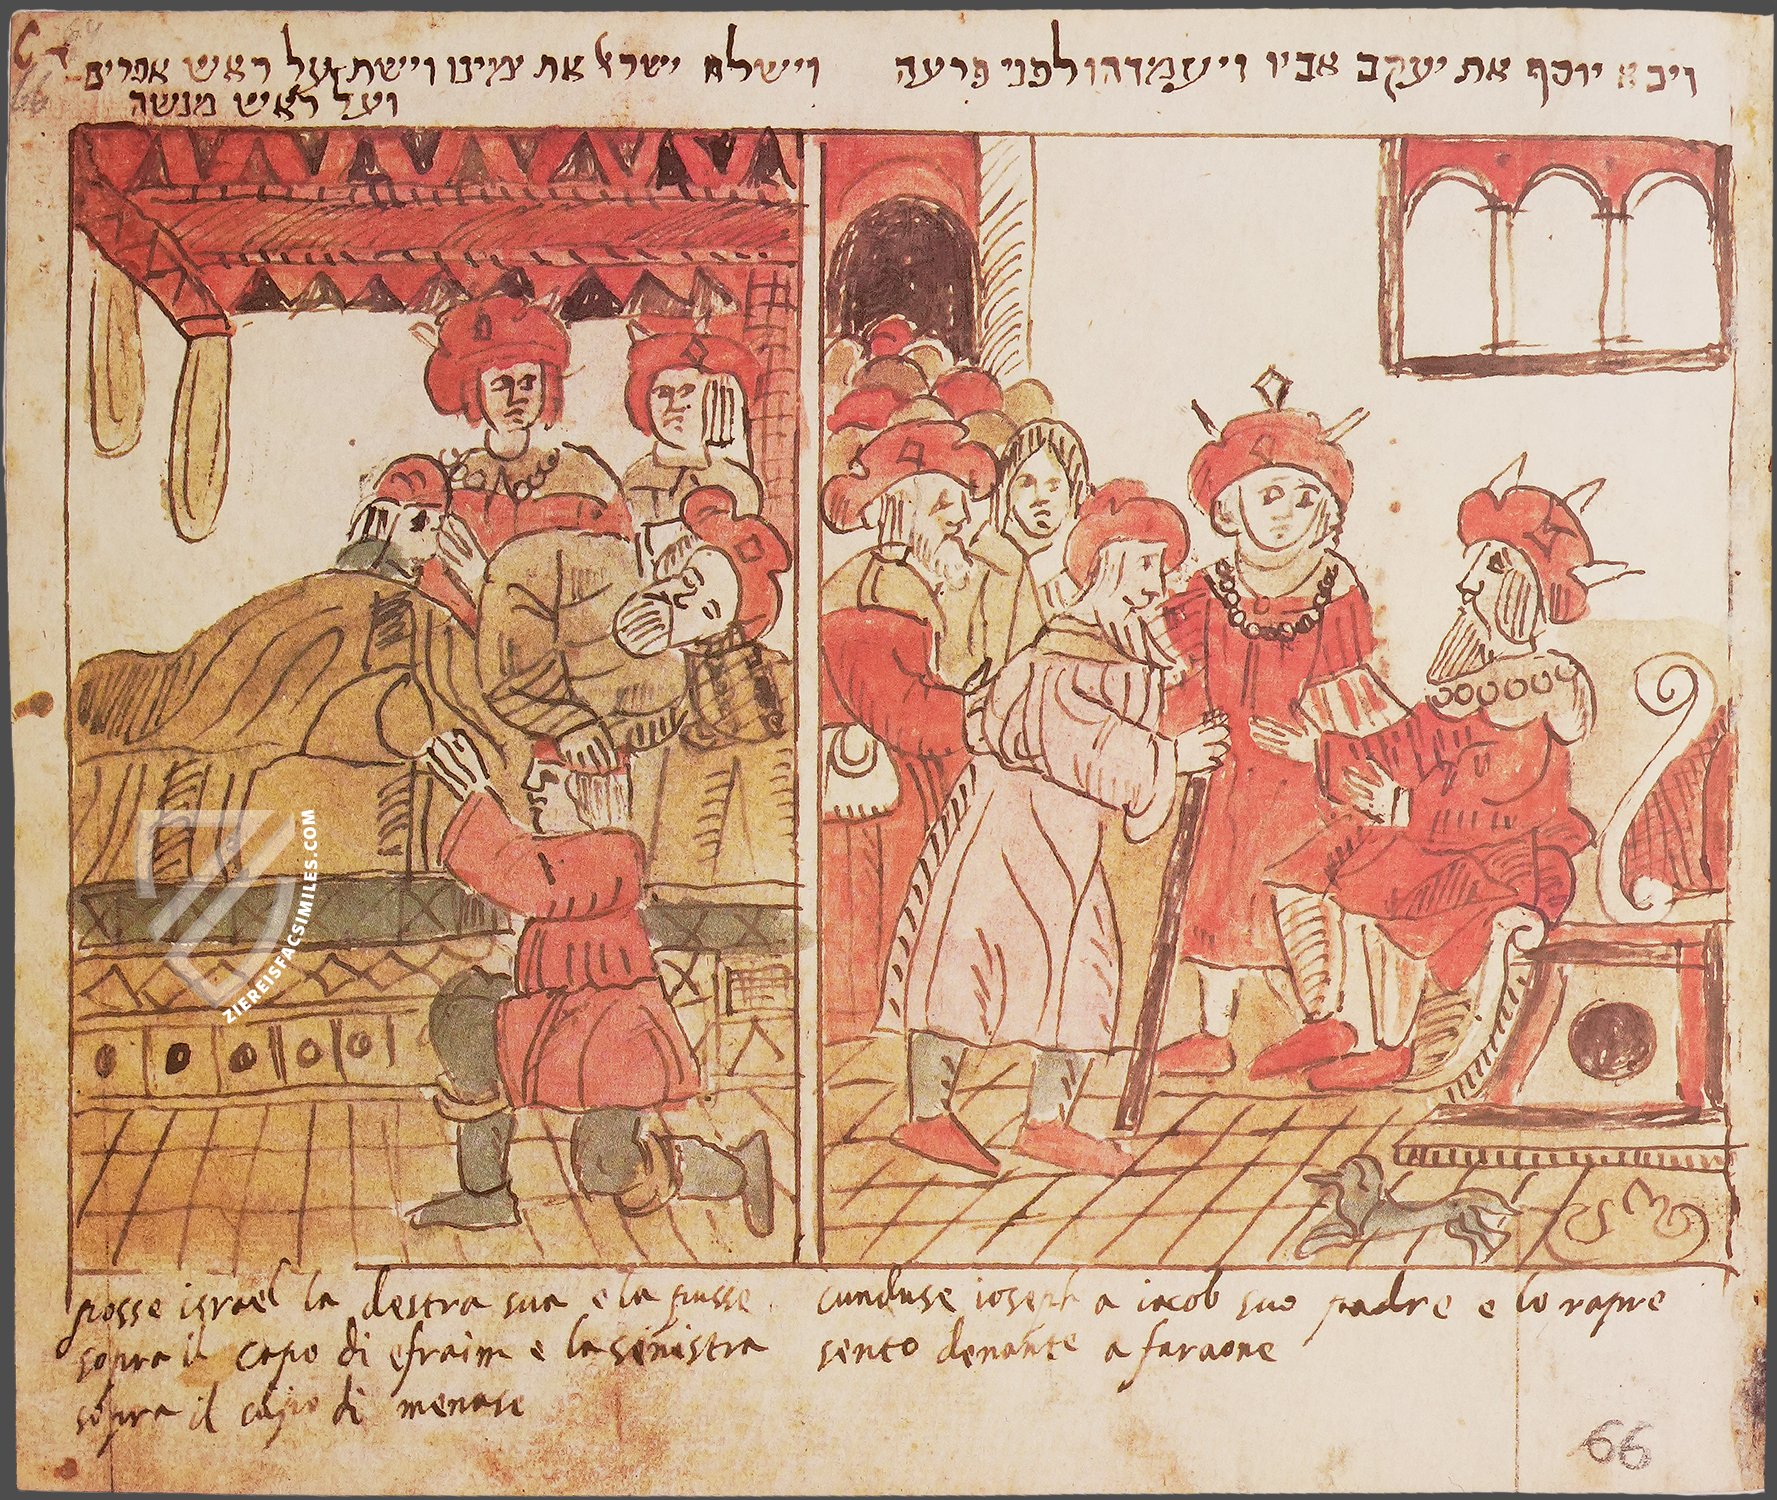 ויבא יוסף את יעקב אביו ויעמדהו לפני פרעה
וישלח ישראל את ימינו וישת על ראש אפרים
ועל ראש מנשה
cunduse ioseph a iacob suo padre e lo rapre
sento denante a faraone
posse israel la destra sua e la pusse
sopra il capo di efraim e la senistra
sopra il capo di menase
66
ZIEREISFACSIMILES.COM